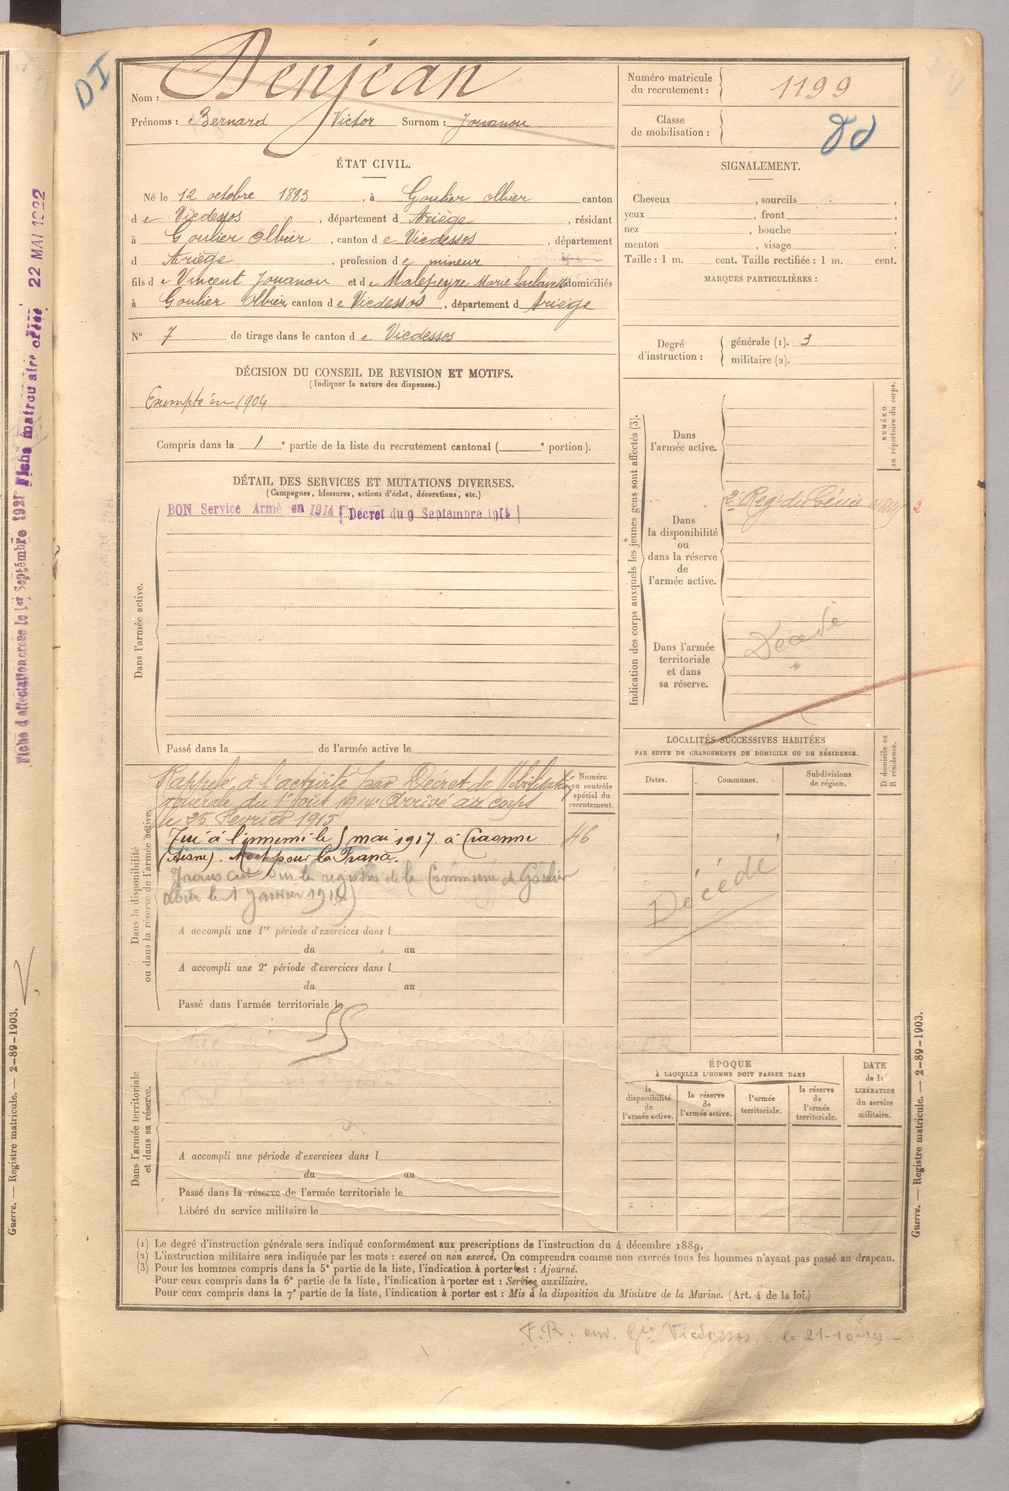 DI
Nom : Denjean
Prénoms : Bernard Victor Surnom : Jouanou
Numéro matricule du recrutement : 1199
Classe de mobilisation :
ÉTAT CIVIL.
Né le 12 octobre 1883, à Goulier Olbier canton
d e Vicdessos, département d Ariège, résidant
à Goulier Olbier, canton d e Vicdessos, département
d Ariège, profession d e mineur
fils d e Vincent Jouanou et d e Malepeyre Marie domiciliés
à Goulier Olbier canton d e Vicdessos, département d Ariège
N° 7 de tirage dans le canton d e Vicdessos
SIGNALEMENT.
Cheveux , sourcils ,
yeux , front ,
nez , bouche ,
menton , visage ,
Taille : 1 m. cent. Taille rectifiée : 1 m. cent.
MARQUES PARTICULIÈRES :
Degré d'instruction : générale (1). 3
militaire (2).
DÉCISION DU CONSEIL DE REVISION ET MOTIFS.
(Indiquer la nature des dispenses.)
Exempté en 1904
Compris dans la 1 e partie de la liste du recrutement cantonal ( e portion).
DÉTAIL DES SERVICES ET MUTATIONS DIVERSES.
(Campagnes, blessures, actions d'éclat, décorations, etc.)
BON Service Armé en 1914 [Décret du 9 Septembre 1914]
Dans l'armée active.
Passé dans la de l'armée active le
Dans la disponibilité
ou dans la réserve de l'armée active.
Rappelé à l'activité par Décret de Mobilisation
générale du 1 Août 1914. Arrivé au corps
le 25 Février 1915
Tué à l'ennemi le 5 mai 1917 à Craonne
(Aisne). Mort pour la France.
sur les registres de la Commune de Goulier
Olbier le 1 Janvier 1918)
A accompli une 1re période d'exercices dans l
du au
A accompli une 2e période d'exercices dans l
du au
Passé dans l'armée territoriale le
Dans l'armée territoriale
et dans sa réserve.
A accompli une période d'exercices dans l
du au
Passé dans la réserve de l'armée territoriale le
Libéré du service militaire le
Numéro au contrôle spécial du recrutement.
46
Indication des corps auxquels les jeunes gens sont affectés (3).
NUMÉRO au répertoire du corps.
Dans l'armée active.
Dans la disponibilité ou dans la réserve de l'armée active.
2e Reg. du Génie
Dans l'armée territoriale et dans sa réserve.
Décédé
LOCALITÉS SUCCESSIVES HABITÉES
PAR SUITE DE CHANGEMENTS DE DOMICILE OU DE RÉSIDENCE.
D domicile ou R résidence.
Dates. Communes. Subdivisions de région.
Décédé
ÉPOQUE
À LAQUELLE L'HOMME DOIT PASSER DANS
la disponibilité de l'armée active.
la réserve de l'armée active.
l'armée territoriale.
la réserve de l'armée territoriale.
DATE de la LIBÉRATION du service militaire.
(1) Le degré d'instruction générale sera indiqué conformément aux prescriptions de l'instruction du 4 décembre 1889.
(2) L'instruction militaire sera indiquée par les mots : exercé ou non exercé. On comprendra comme non exercés tous les hommes n'ayant pas passé au drapeau.
(3) Pour les hommes compris dans la 5e partie de la liste, l'indication à porter est : Ajourné.
Pour ceux compris dans la 6e partie de la liste, l'indication à porter est : Service auxiliaire.
Pour ceux compris dans la 7e partie de la liste, l'indication à porter est : Mis à la disposition du Ministre de la Marine. (Art. 4 de la loi.)
F.R. env. Gie Vicdessos le 21-10-19
Fiche d'attestation créée le 1er Septembre 1921
Fiche matriculaire créée 22 MAI 1922
Guerre. — Registre matricule. — 2-89-1903.
Guerre. — Registre matricule. — 2-89-1903.